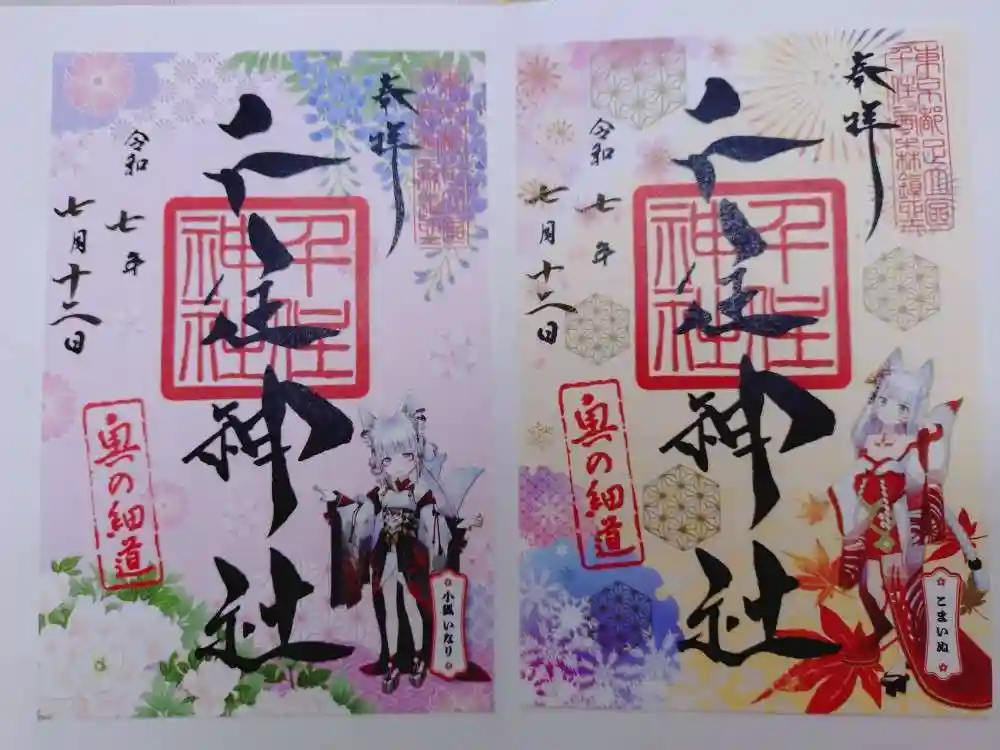 奉拝
千住神社
千住
神社
令和 七年
七月十二日
奥の細道
小狐いなり
東京都足立區
奉拝
千住神社
千住
神社
令和 七年
七月十二日
奥の細道
こまいぬ